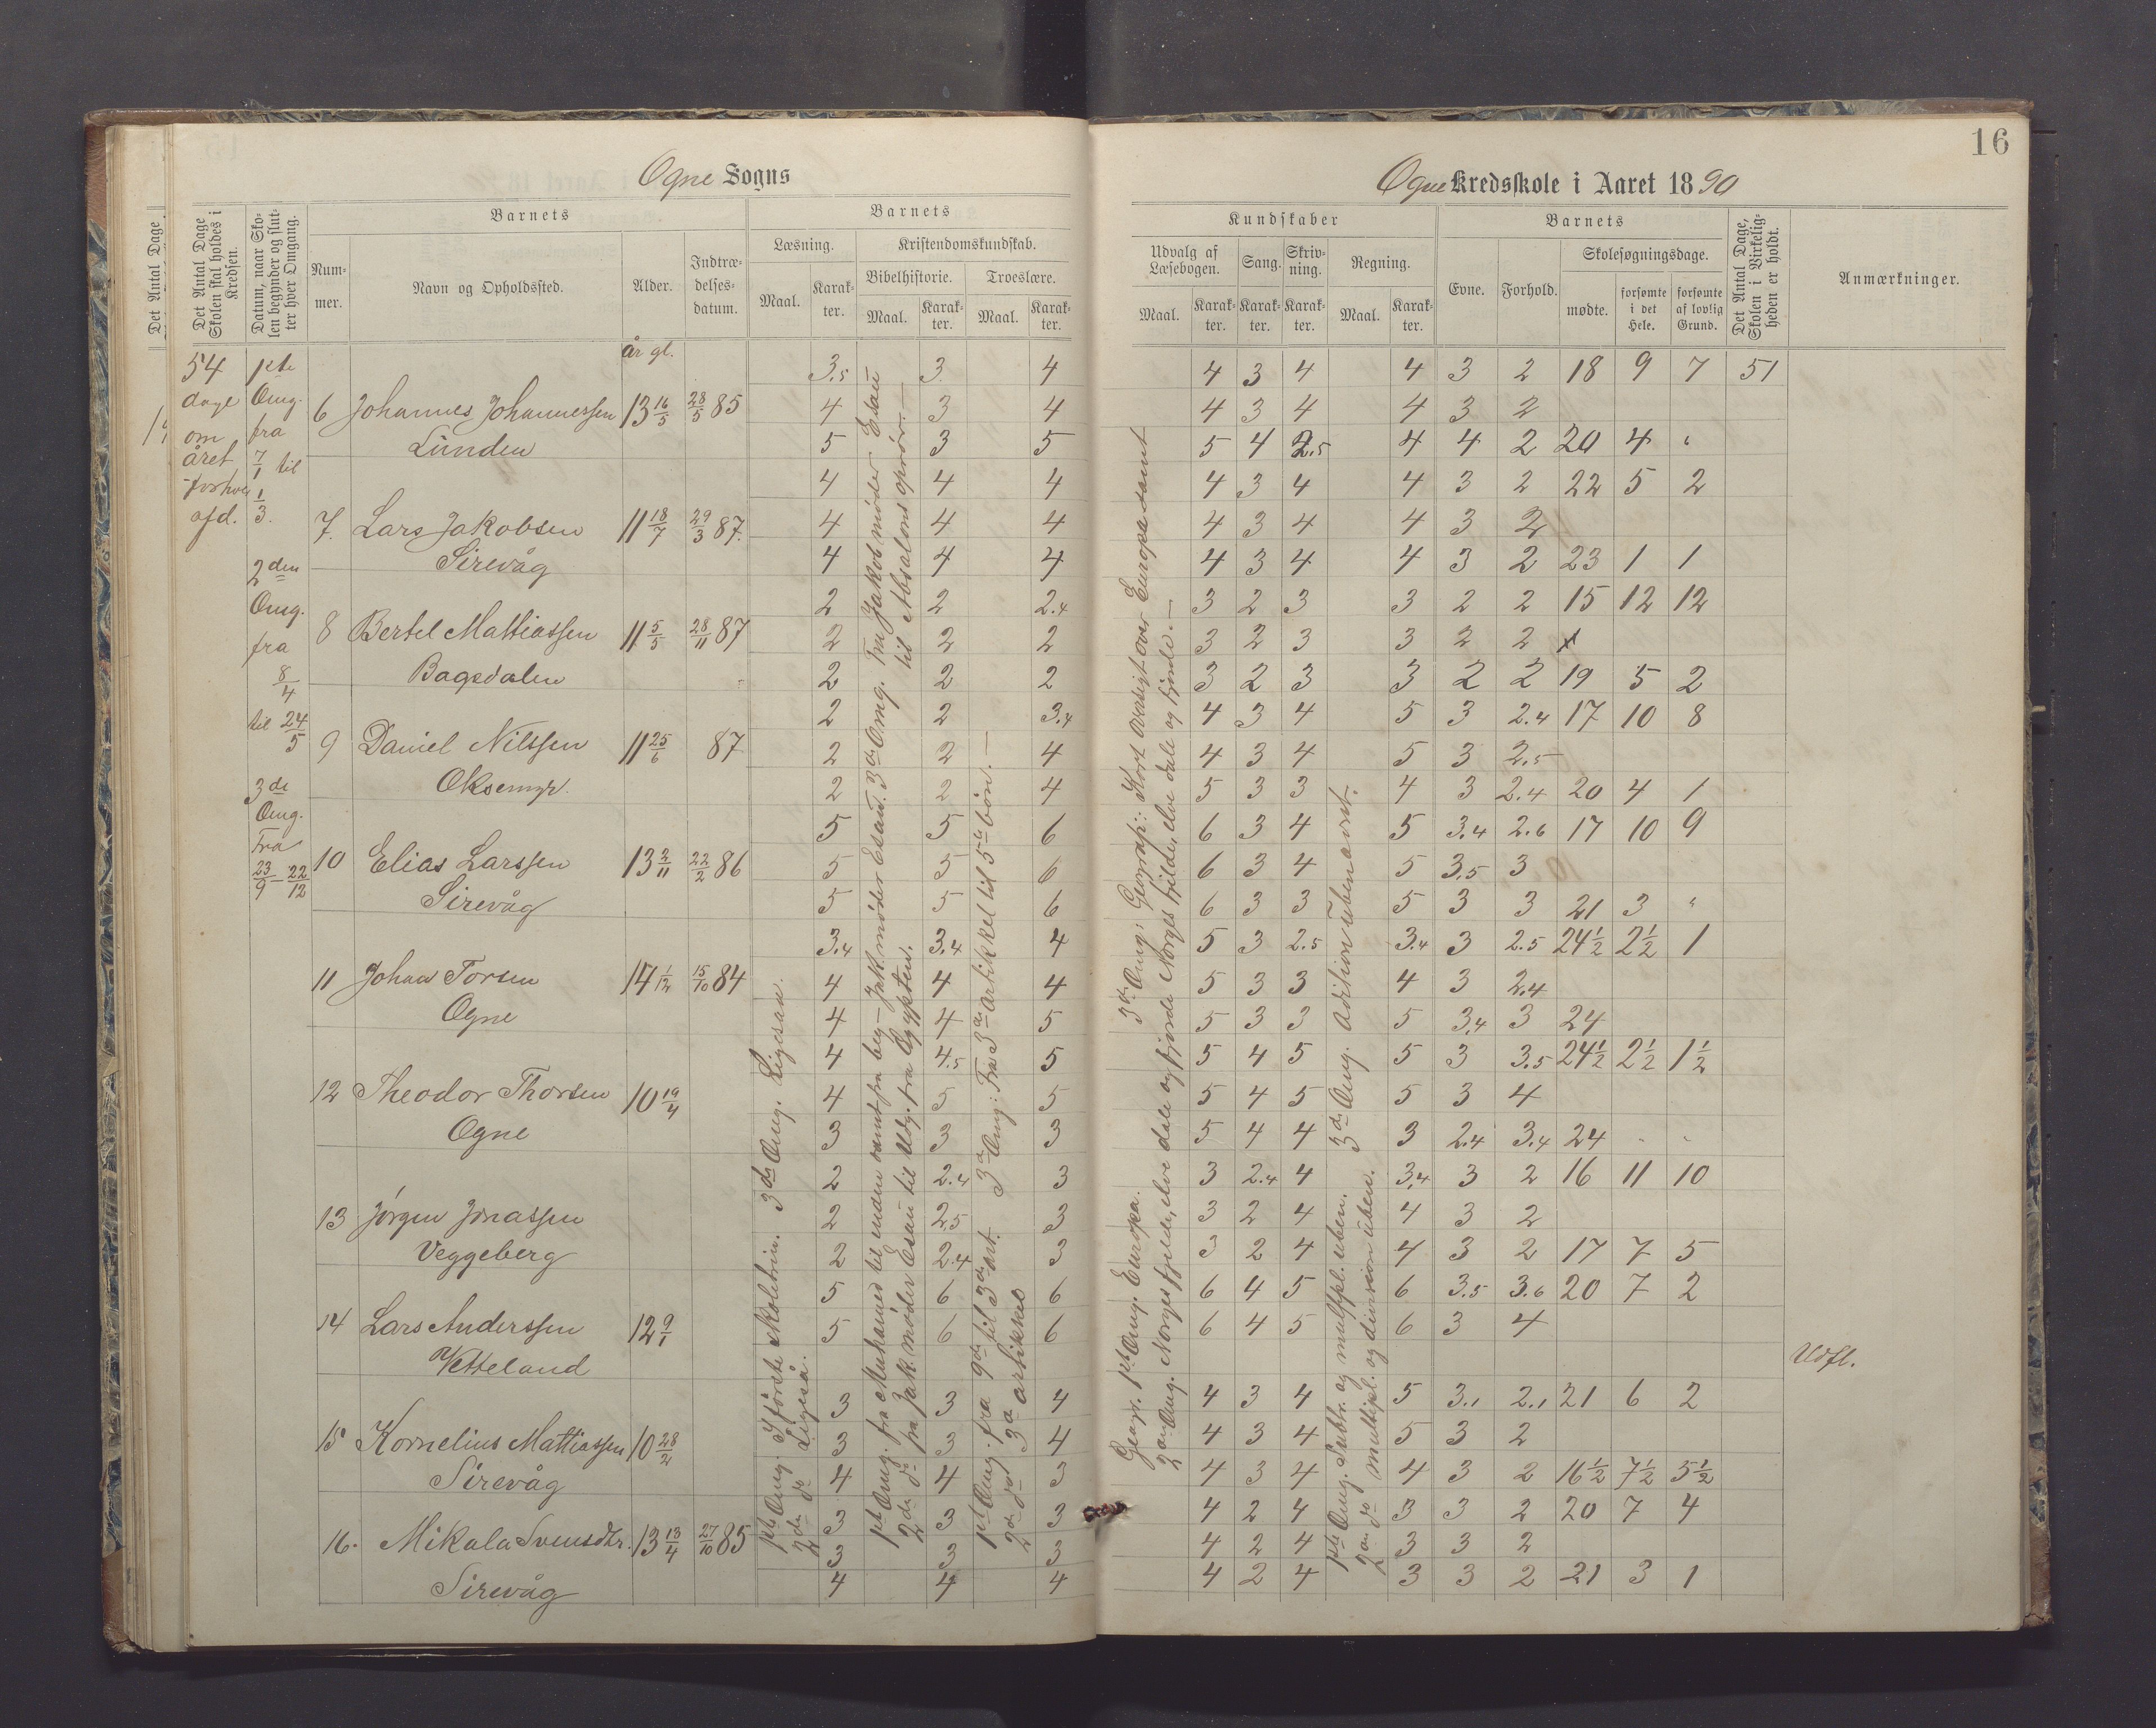 16
Ogne Sogns
Ogne Kredsskole i Aaret 1890
Det Antal Dage
Det Antal Dage Skolen skal holdes i Kredsen.
Datum, naar Skolen begynder og slutter hver Omgang.
Barnets
Nummer.
Navn og Opholdssted.
Alder.
Indtrædelsesdatum.
Barnets
Læsning.
Kristendomskundskab.
Bibelhistorie.
Troeslære.
Maal.
Karakter.
Maal.
Karakter.
Maal.
Karakter.
Kundskaber
Udvalg af Læsebogen.
Sang.
Skrivning.
Regning.
Maal.
Karakter.
Karakter.
Karakter.
Maal.
Karakter.
Barnets
Evne.
Forhold.
Skolesøgningsdage.
mødte.
forsømte i det Hele.
forsømte af lovlig Grund.
Det Antal Dage, Skolen i Virkeligheden er holdt.
Anmærkninger.
54
dage
om
året
forhver
afd.
1ste
Omg.
fra
7/1 til
1/3.
2den
Omg.
fra
8/4
til 24/5
3die
Omg.
Fra
23/9 – 22/12
år gl.
3.5 3. 4 4 3 4 4 3 2 18 9 7 51
6 Johannes Johannessen 13 16/5 28/5 85 4 3 4 4 3 4 4 3 2
Lunden 5 3 5 5 4 2.5 4 4 2 20 4 "
4 4 4 4 3 4 4 3 2 22 5 2
7. Lars Jakobsen 11 18/7 29/3 87. 4 4 4 4 3 4 4 3 2
Sirevåg 4 4 4 4 3 4 4 3 2 23 1 1
2 2 2.4 3 2 3 3 2 2 15 12 12
8 Bertel Mattiassen 11 5/5 28/11 87 2 2 2 3 2 3 3 2 2
Bagsdalen 2 2 2 3 2 3 3 2 2 19 5 2
2 2 3.4 4 3 4 5 3 2.4 17 10 8
9 Daniel Nilssen 11 25/6 87 2 2 4 4 3 4 5 3 2.5
Oksemyr. 2 2 4 5 3 3 4 3 2.4 20 4 1
5 5 6 6 3 4 5 3.4 2.6 17 10 9
10 Elias Larssen 13 2/11 22/2 86 5 5 6 6 3 4 5 3.5 3
Sirevåg 5 5 6 6 3 3 5 3 3 21 3 "
3.4 3.4 4 5 3 2.5 3.4 3 2.5 24½ 2½ 1
11 Johan Torsen 14 1/12 15/10 84 4 4 4 5 3 3 4 3 2.4
Ogne 4 4 5 5 3 3 5 3.4 3 24
4 4.5 5 5 4 5 5 3 3.5 24½ 2½ 1½
12 Theodor Thorsen 10 19/4 4 5 5 5 4 5 5 3 4
Ogne 3 3 3 5 4 4 3 2.4 3.4 24 " "
2 2.4 3 3 2.4 4 3.4 3 2 16 11 10
13 Jörgen Jonassen 2 2.5 3 3 2 4 4 3 2
Veggeberg 2 2.4 3 3 2 4 4 3 2 17 7 5
5 6 6 6 4 5 6 3.5 3.6 20 7 2
14 Lars Anderssen 12 9/1 5 6 6 6 4 5 6 3 4
Vetteland Udfl.
3 3 4 4 3 4 5 3.1 2.1 21 6 2
15 Kornelius Mattiassen 10 28/2 3 3 4 4 3 4 5 3 2
Sirevåg 4 4 3 4 3 4 4 3 2 16½ 7½ 5½
3 3 3 4 2 4 3 3 2 20 7 4
16. Mikala Svensdtr. 13 13/4 27/10 85 3 3 3 4 2 4 3 3 2
Sirevåg 4 4 4 4 2 4 3 3 2 21 3 1
1ste Omg. I første skoletrin. 3die Omg. Ligesaa.
2den do Ligeså.
1ste Omg. fra Muhamed til enden samt fra beg – Jak. møder Esau. 3die Omg. Fra Jakob møder Esau
2den do fra Jak. møder Esau til Udg. fra Ægypten. til Absalons oprør. –
1ste Omg. fra 9de til 3die art. 3die Omg: Fra 3die artikkel til 5te bön. –
2den do 3die artikkel
Geogr. 1ste Omg. Europa. 3die Omg: Geografi: Kort oversigt over Europa samt
2den Omg. Norges fjelde, elve dale og fjorde Norges fjelde, elve dale og fjorde. –
1ste Omg. Subtr. og multipl. uben. 3die Omg. Adition ubenævnt.
2den do multipl. og division uben.